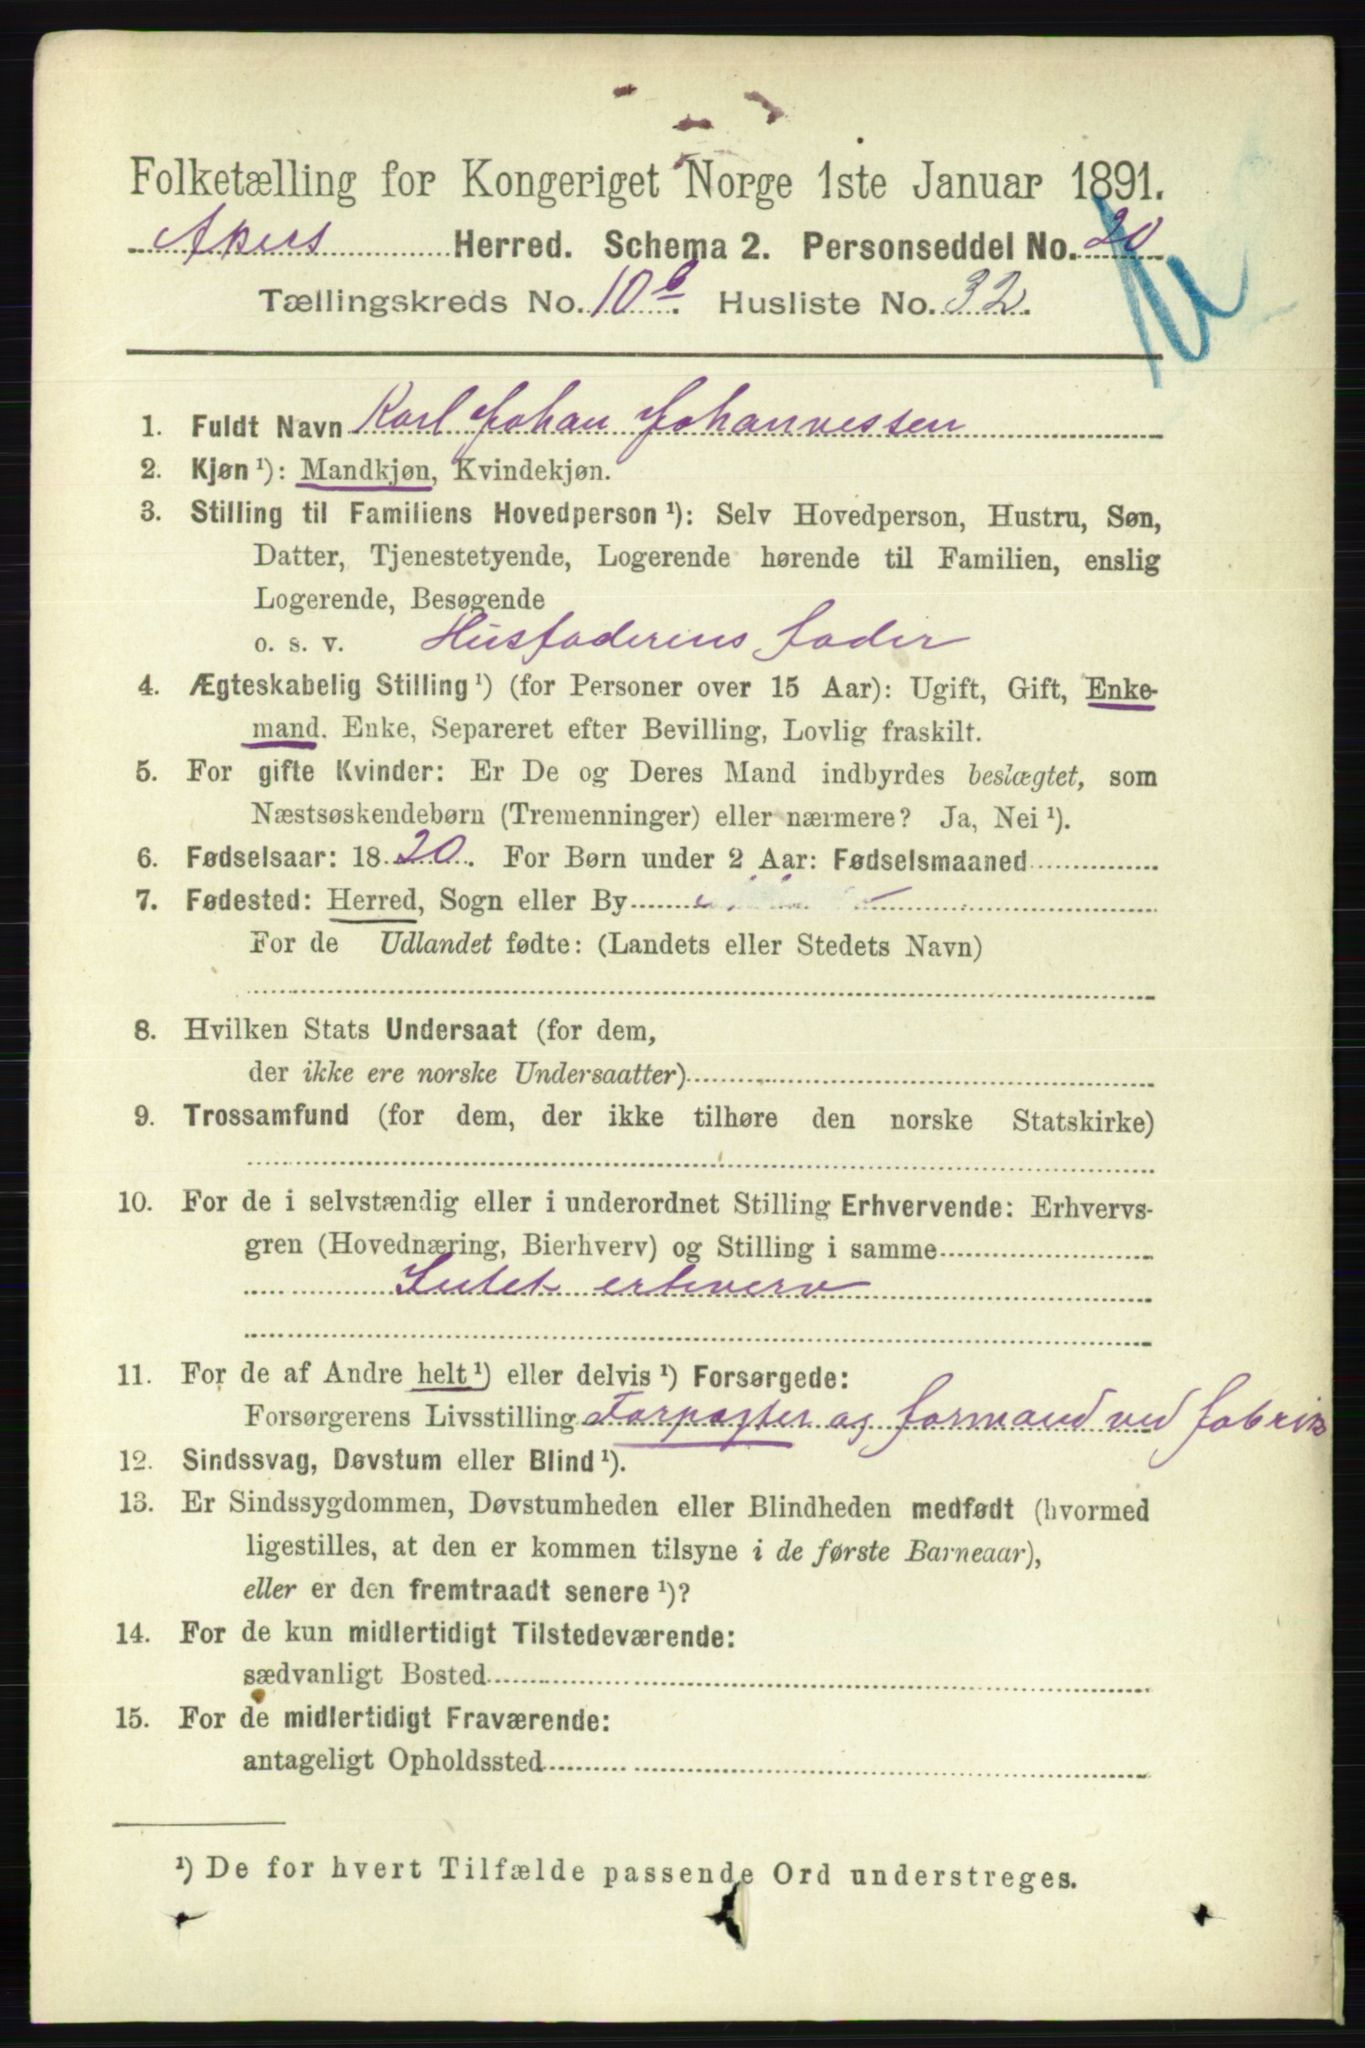 Folketælling for Kongeriget Norge 1ste Januar 1891.
Akers Herred. Schema 2. Personseddel No. 20
Tællingskreds No. 10b. Husliste No. 32.
1. Fuldt Navn Karl Johan Johannessen
2. Kjøn ¹): Mandkjøn, Kvindekjøn.
3. Stilling til Familiens Hovedperson ¹): Selv Hovedperson, Hustru, Søn,
Datter, Tjenestetyende, Logerende hørende til Familien, enslig
Logerende, Besøgende
o. s. v. Husfaderens fader
4. Ægteskabelig Stilling ¹) (for Personer over 15 Aar): Ugift, Gift, Enke-
mand. Enke, Separeret efter Bevilling, Lovlig fraskilt.
5. For gifte Kvinder: Er De og Deres Mand indbyrdes beslægtet, som
Næstsøskendebørn (Tremenninger) eller nærmere? Ja, Nei ¹).
6. Fødselsaar: 1820. For Børn under 2 Aar: Fødselsmaaned
7. Fødested: Herred, Sogn eller By
For de Udlandet fødte: (Landets eller Stedets Navn)
8. Hvilken Stats Undersaat (for dem,
der ikke ere norske Undersaatter)
9. Trossamfund (for dem, der ikke tilhøre den norske Statskirke)
10. For de i selvstændig eller i underordnet Stilling Erhvervende: Erhvervs-
gren (Hovednæring, Bierhverv) og Stilling i samme
Intet erhverv
11. For de af Andre helt ¹) eller delvis ¹) Forsørgede:
Forsørgerens Livsstilling Forpagter og formand ved fabrik
12. Sindssvag, Døvstum eller Blind ¹).
13. Er Sindssygdommen, Døvstumheden eller Blindheden medfødt (hvormed
ligestilles, at den er kommen tilsyne i de første Barneaar),
eller er den fremtraadt senere ¹)?
14. For de kun midlertidigt Tilstedeværende:
sædvanligt Bosted
15. For de midlertidigt Fraværende:
antageligt Opholdssted
¹) De for hvert Tilfælde passende Ord understreges.